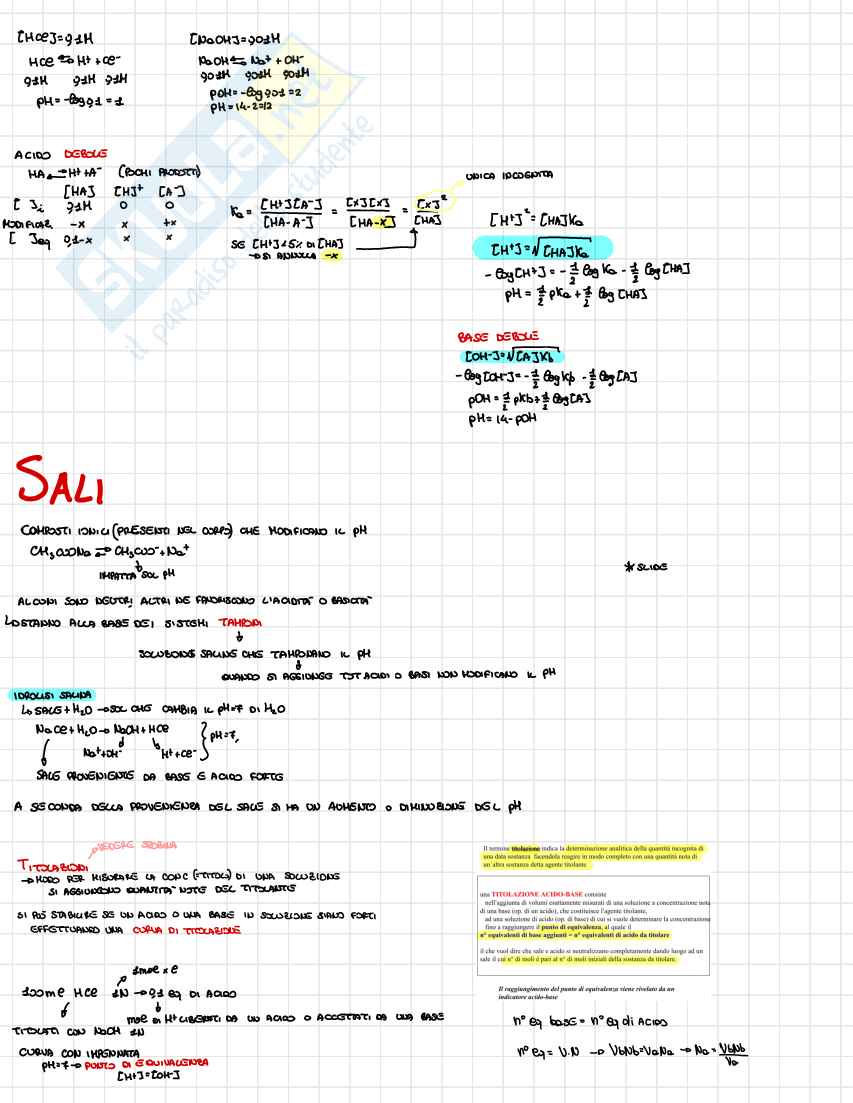 [HCl]=0,1M
HCl ⇋ H⁺ + Cl⁻
0,1M 0,1M 0,1M
pH = -log 0,1 = 1
[NaOH]=0,01M
NaOH ⇋ Na⁺ + OH⁻
0,01M 0,01M 0,01M
pOH = -log 0,01 = 2
pH = 14-2=12
SKUOLA.net
il paradiso dello studente
ACIDO DEBOLE
HA ⇋ H⁺+A⁻ (POCHI PRODOTTI)
[HA] [H]⁺ [A⁻]
[ ]i 0,1M 0 0
MODIFICAZ. -x x +x
[ ]eq 0,1-x x x
Ka = [H⁺][A⁻]/[HA-A⁻] = [x][x]/[HA-x] = [x]²/[HA]
UNICA INCOGNITA
SE [H⁺]<5% DI [HA]
→ SI ANNULLA -x
[H⁺]²=[HA]Ka
[H⁺]=√[HA]Ka
-log[H⁺] = -1/2 log Ka - 1/2 log [HA]
pH = 1/2 pKa + 1/2 log [HA]
BASE DEBOLE
[OH⁻]=√[A]Kb
-log[OH⁻]=-1/2 log Kb - 1/2 log[A]
pOH = 1/2 pKb+1/2 log[A]
pH = 14-pOH
SALI
COMPOSTI IONICI (PRESENTI NEL CORPO) CHE MODIFICANO IL pH
CH₃COONa ⇋ CH₃COO⁻+Na⁺
IMPATTA SUL pH
* SLIDE
ALCUNI SONO NEUTRI, ALTRI NE FAVORISCONO L'ACIDITA' O BASICITA'
↳ STANNO ALLA BASE DEI SISTEMI TAMPONI
SOLUZIONE SALINE CHE TAMPONANO IL pH
QUANDO SI AGGIUNGE TOT ACIDI O BASI NON MODIFICANO IL pH
IDROLISI SALINA
↳ SALE+H₂O → SOL CHE CAMBIA IL pH=7 DI H₂O
NaCl+H₂O → NaOH+HCl } pH=7,
Na⁺+OH⁻ H⁺+Cl⁻
SALE PROVENIENTE DA BASE E ACIDO FORTE
A SECONDA DELLA PROVENIENZA DEL SALE SI HA UN AUMENTO O DIMINUZIONE DEL pH
TITOLAZIONI
→ MODO PER MISURARE LA CONC (=TITOLO) DI UNA SOLUZIONE
SI AGGIUNGONO QUANTITA' NOTE DEL TITOLANTE
SI PUÒ STABILIRE SE UN ACIDO O UNA BASE IN SOLUZIONE SIANO FORTI
EFFETTUANDO UNA CURVA DI TITOLAZIONE
1mol x l
100ml HCl 1N → 0,1 eq DI ACIDO
mol di H⁺ LIBERATI DA UN ACIDO O ACCETTATI DA UNA BASE
TITOLATI CON NaOH 1N
CURVA CON IMPENNATA
pH=7 → PUNTO DI EQUIVALENZA
[H+]=[OH-]
Il termine titolazione indica la determinazione analitica della quantità incognita di
una data sostanza facendola reagire in modo completo con una quantità nota di
un'altra sostanza detta agente titolante
una TITOLAZIONE ACIDO-BASE consiste
nell'aggiunta di volumi esattamente misurati di una soluzione a concentrazione nota
di una base (op. di un acido), che costituisce l'agente titolante,
ad una soluzione di acido (op. di base) di cui si vuole determinare la concentrazione
fino a raggiungere il punto di equivalenza, al quale il
n° equivalenti di base aggiunti = n° equivalenti di acido da titolare
il che vuol dire che sale e acido si neutralizzano completamente dando luogo ad un
sale il cui n° di moli è pari al n° di moli iniziali della sostanza da titolare.
Il raggiungimento del punto di equivalenza viene rivelato da un
indicatore acido-base
n° eq base = n° eq di ACIDO
n° eq = V·N → VbNb=VaNa → Na = VbNb/Va